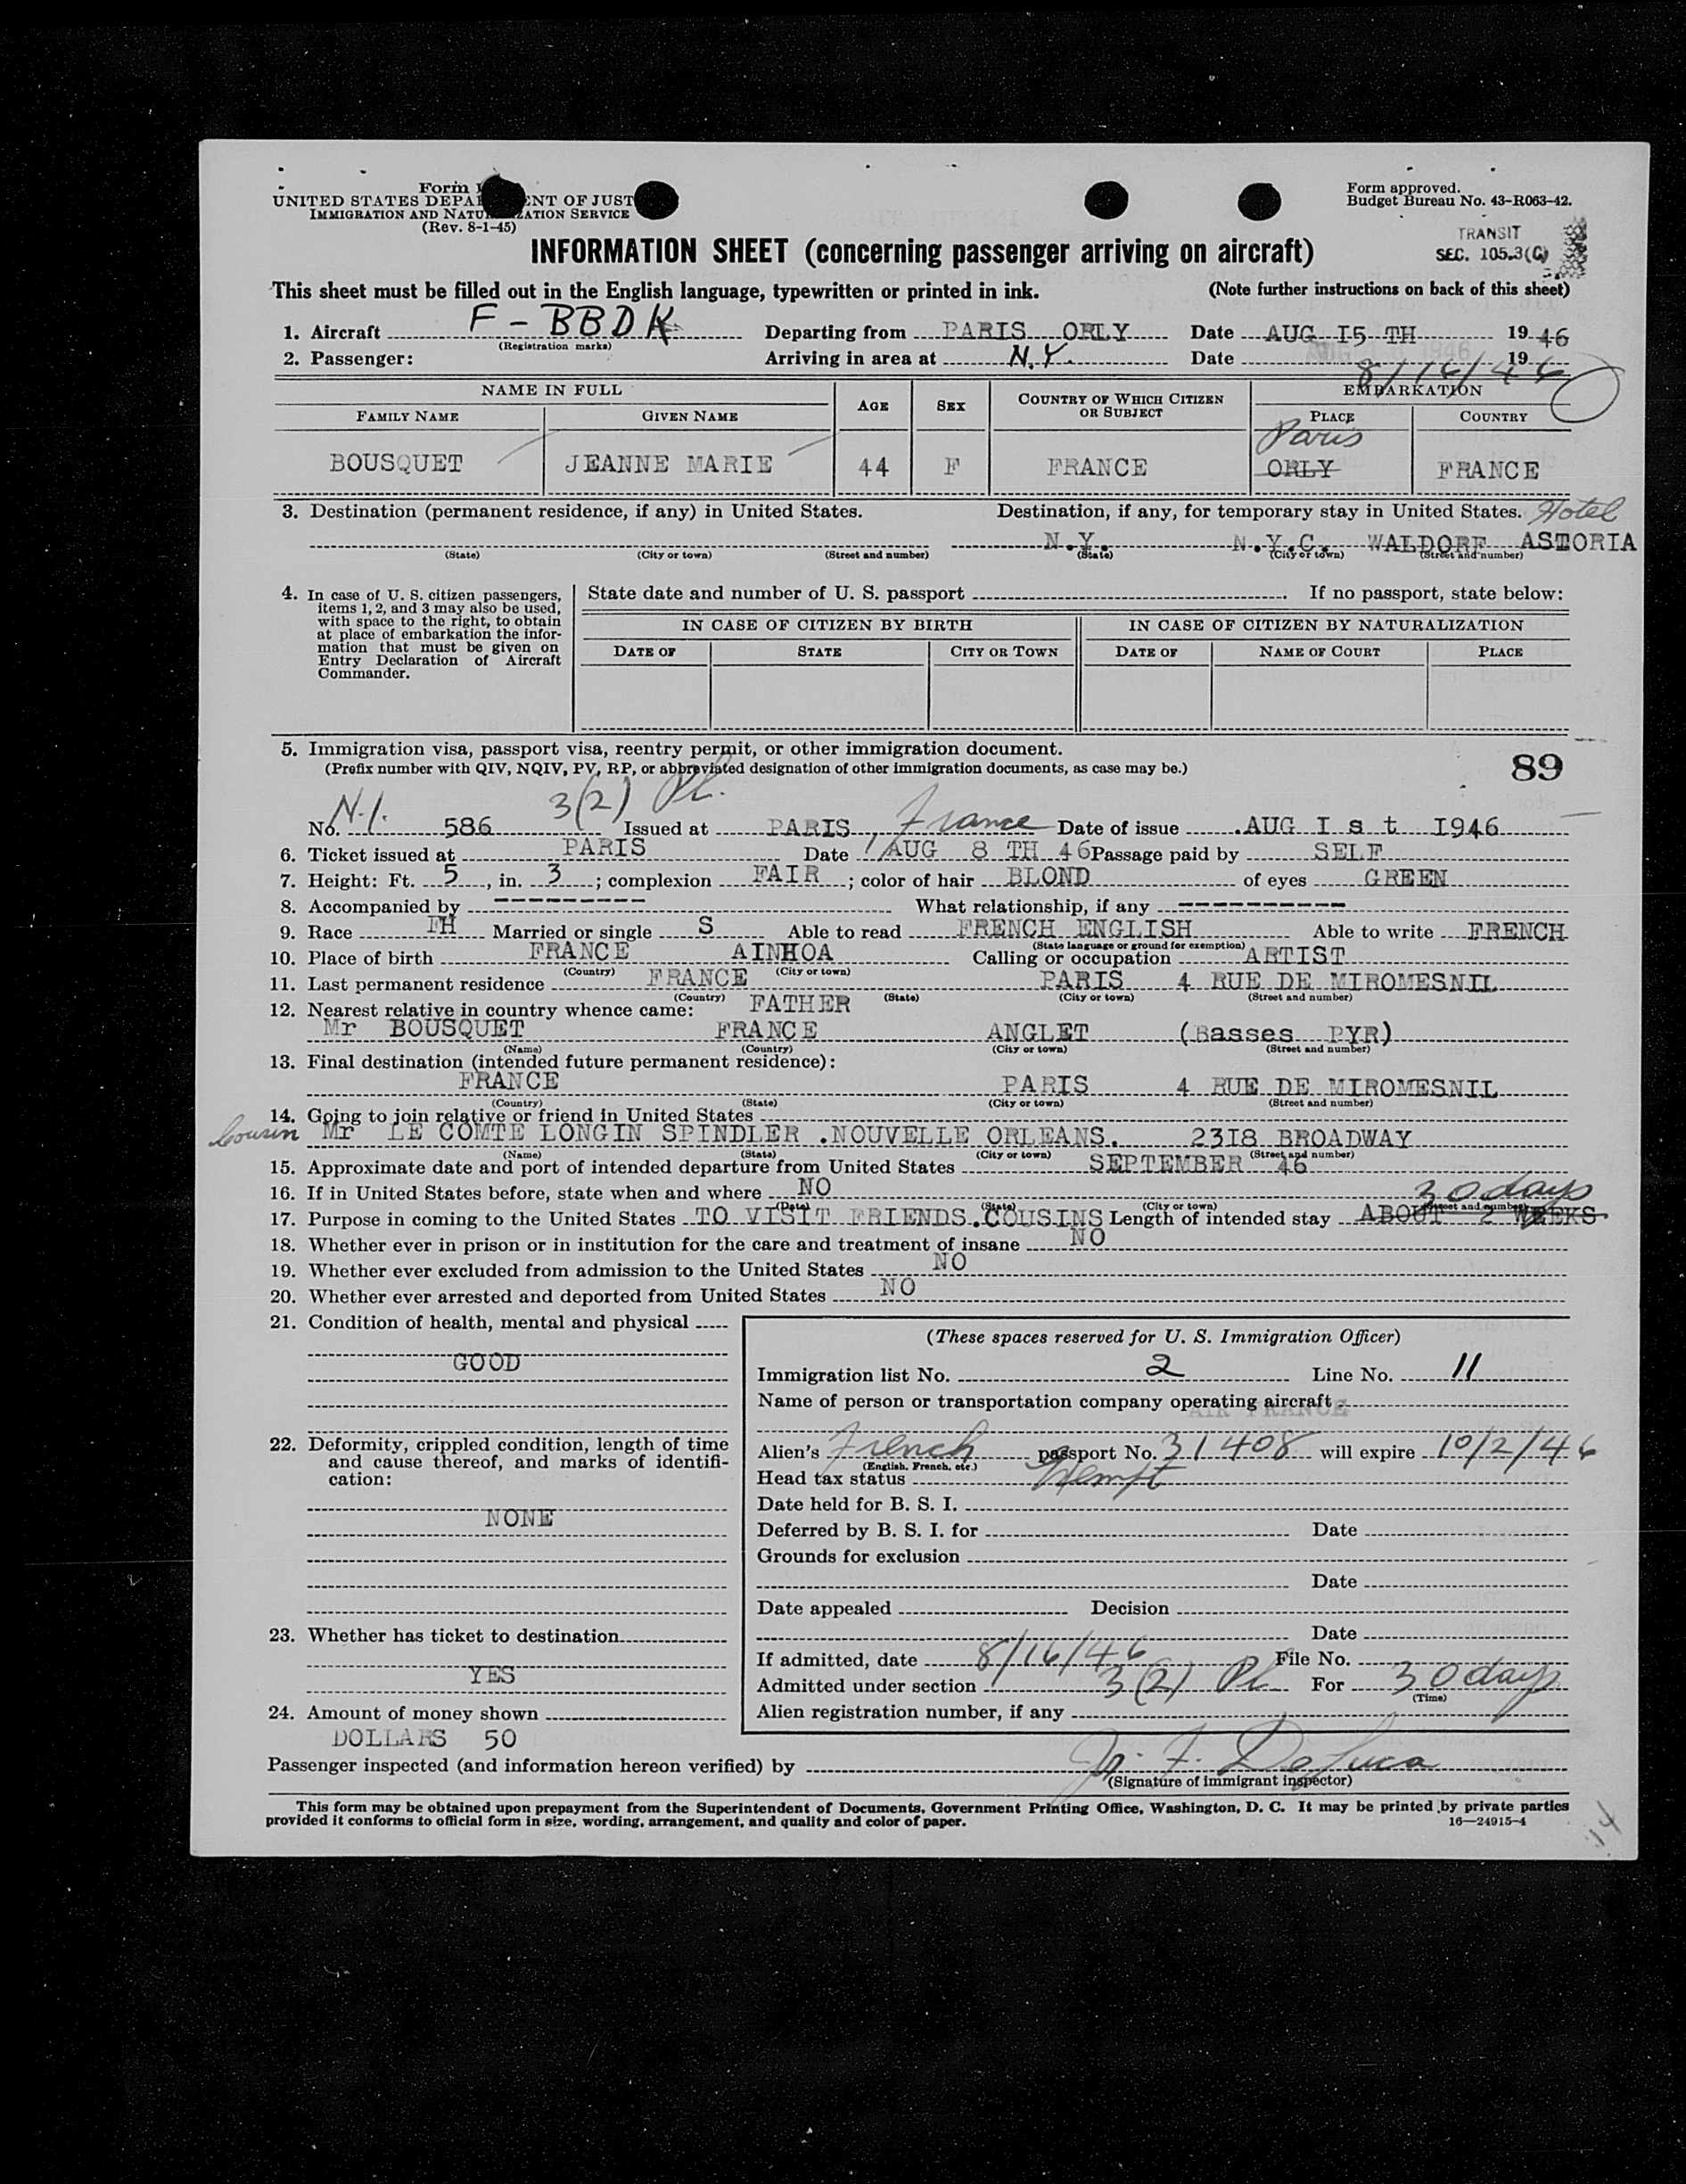 Form
UNITED STATES DEPA ENT OF JUST
IMMIGRATION AND NATU ZATION SERVICE
(Rev. 8-1-45)
Form approved.
Budget Bureau No. 43-R063-42.
TRANSIT
SEC. 105.3(C)
INFORMATION SHEET (concerning passenger arriving on aircraft)
This sheet must be filled out in the English language, typewritten or printed in ink. (Note further instructions on back of this sheet)
1. Aircraft F-BBDK Departing from PARIS ORLY Date AUG I5 TH 19 46
(Registration marks)
2. Passenger: Arriving in area at N.Y. Date 8/16/46 19
NAME IN FULL AGE SEX COUNTRY OF WHICH CITIZEN OR SUBJECT EMBARKATION
FAMILY NAME GIVEN NAME PLACE COUNTRY
Paris
BOUSQUET JEANNE MARIE 44 F FRANCE ORLY FRANCE
3. Destination (permanent residence, if any) in United States. Destination, if any, for temporary stay in United States. Hotel
N.Y. N.Y.C. WALDORF ASTORIA
(State) (City or town) (Street and number) (State) (City or town) (Street and number)
4. In case of U. S. citizen passengers, items 1, 2, and 3 may also be used, with space to the right, to obtain at place of embarkation the information that must be given on Entry Declaration of Aircraft Commander.
State date and number of U. S. passport If no passport, state below:
IN CASE OF CITIZEN BY BIRTH IN CASE OF CITIZEN BY NATURALIZATION
DATE OF STATE CITY OR TOWN DATE OF NAME OF COURT PLACE
5. Immigration visa, passport visa, reentry permit, or other immigration document.
(Prefix number with QIV, NQIV, PV, RP, or abbreviated designation of other immigration documents, as case may be.)
89
3(2) Pl.
No. N.I. 586 Issued at PARIS, France Date of issue .AUG I s t I946
6. Ticket issued at PARIS Date AUG 8 TH 46 Passage paid by SELF
7. Height: Ft. 5, in. 3; complexion FAIR; color of hair BLOND of eyes GREEN
8. Accompanied by --------- What relationship, if any ----------
9. Race FH Married or single S Able to read FRENCH ENGLISH Able to write FRENCH
(State language or ground for exemption)
10. Place of birth FRANCE AINHOA Calling or occupation ARTIST
(Country) (City or town)
11. Last permanent residence FRANCE PARIS 4 RUE DE MIROMESNIL
(Country) (State) (City or town) (Street and number)
12. Nearest relative in country whence came: FATHER
Mr BOUSQUET FRANCE ANGLET (Basses PYR)
(Name) (Country) (City or town) (Street and number)
13. Final destination (intended future permanent residence):
FRANCE PARIS 4 RUE DE MIROMESNIL
(Country) (State) (City or town) (Street and number)
14. Going to join relative or friend in United States
Cousin Mr LE COMTE LONGIN SPINDLER .NOUVELLE ORLEANS. 23I8 BROADWAY
(Name) (State) (City or town) (Street and number)
15. Approximate date and port of intended departure from United States SEPTEMBER 46
16. If in United States before, state when and where NO
(Date) (State) (City or town) (Street and number)
30 days
17. Purpose in coming to the United States TO VISIT FRIENDS.COUSINS Length of intended stay ABOUT 2 WEEKS
18. Whether ever in prison or in institution for the care and treatment of insane NO
19. Whether ever excluded from admission to the United States NO
20. Whether ever arrested and deported from United States NO
21. Condition of health, mental and physical
GOOD
22. Deformity, crippled condition, length of time and cause thereof, and marks of identification:
NONE
23. Whether has ticket to destination
YES
24. Amount of money shown
DOLLARS 50
(These spaces reserved for U. S. Immigration Officer)
Immigration list No. 2 Line No. 11
Name of person or transportation company operating aircraft
AIR FRANCE
Alien's French passport No. 31408 will expire 10/2/46
(English, French, etc.)
Head tax status Exempt
Date held for B. S. I.
Deferred by B. S. I. for Date
Grounds for exclusion
Date
Date appealed Decision
Date
If admitted, date 8/16/46 File No.
Admitted under section 3(2) Pl For 30 days
(Time)
Alien registration number, if any
Passenger inspected (and information hereon verified) by J. F. DeLuca
(Signature of immigrant inspector)
This form may be obtained upon prepayment from the Superintendent of Documents, Government Printing Office, Washington, D. C. It may be printed by private parties
provided it conforms to official form in size, wording, arrangement, and quality and color of paper. 16—24915-4
14